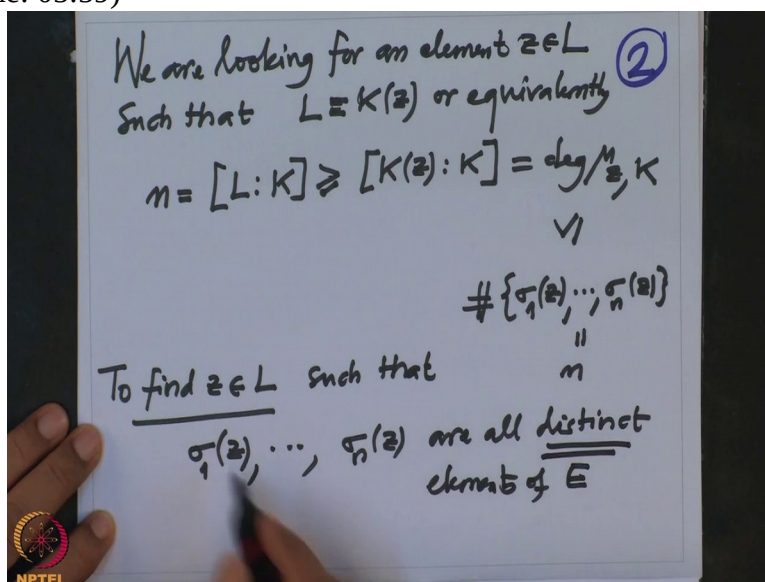 We are looking for an element z∈L
②
Such that L = K(z) or equivalently
n = [L:K] ⩾ [K(z):K] = deg μ_{z,K}
\/|
#{σ₁(z),⋯,σₙ(z)}
||
n
To find z∈L such that
σ₁(z), ⋯, σₙ(z) are all distinct
elements of E
NPTEL